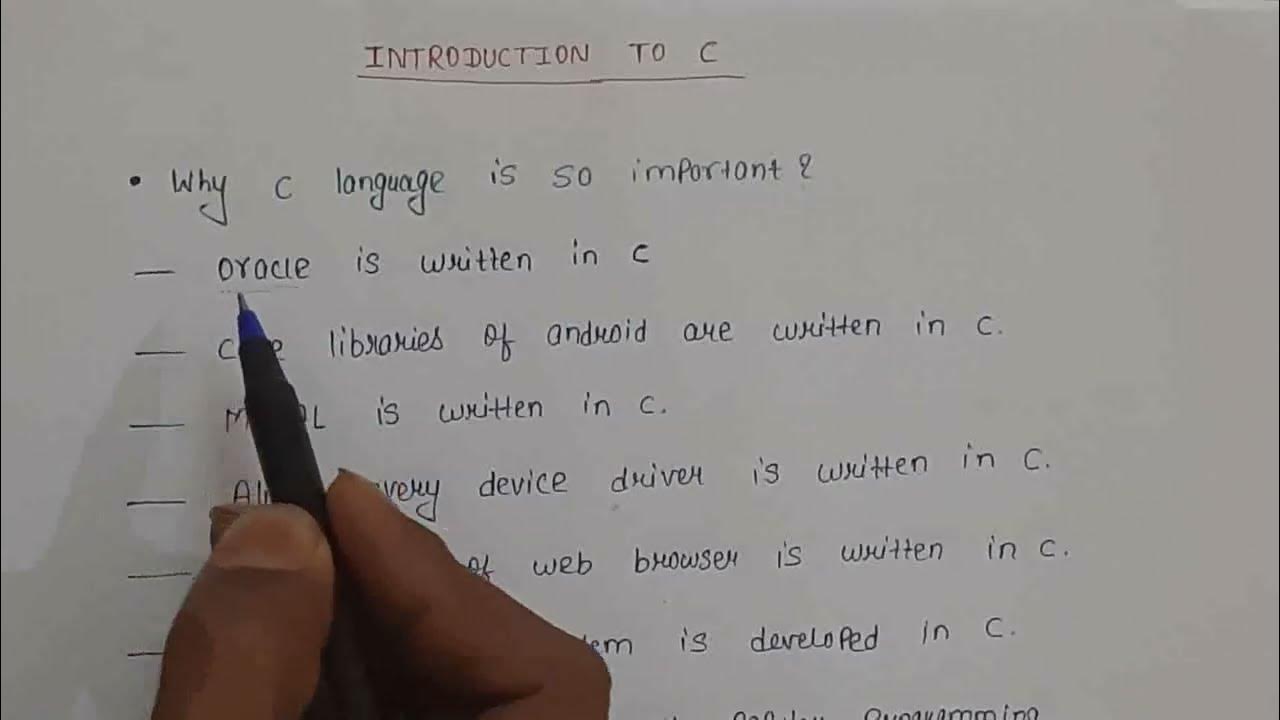 INTRODUCTION TO C
• Why C language is so important?
— oracle is written in C
— libraries of android are written in C.
— is written in C.
— device driver is written in C.
— of web browser is written in C.
— is developed in C.
Programming